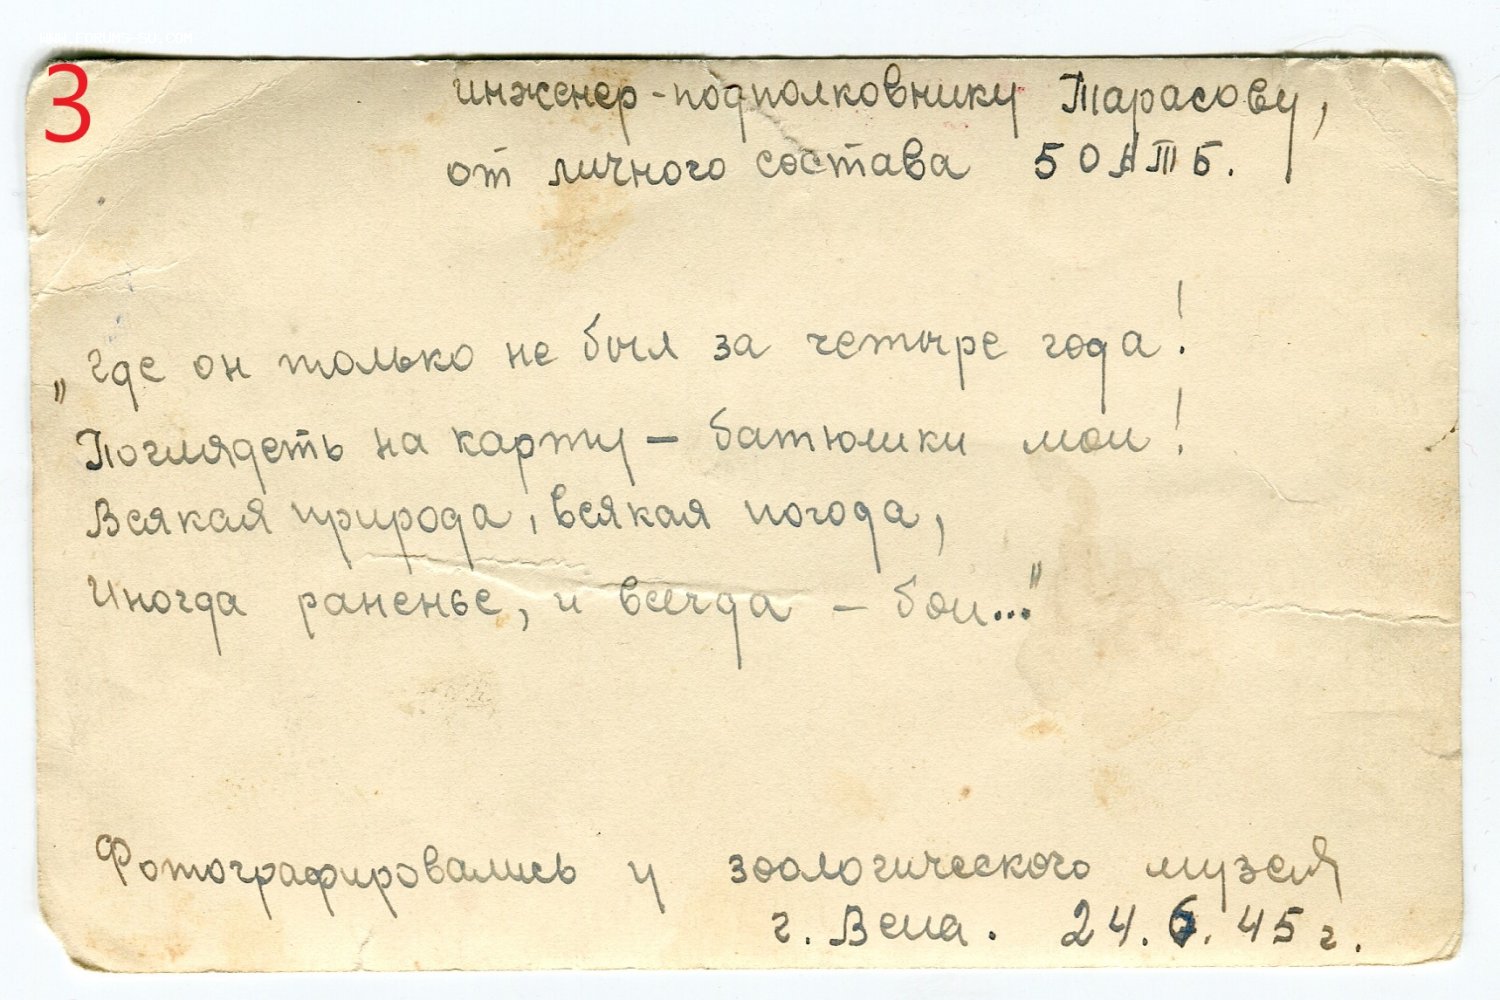 WWW.FORUMS-SU.COM
3
инженер-подполковнику Тарасову,
от личного состава 50АТБ.
„Где он только не был за четыре года!
Поглядеть на карту – батюшки мои!
Всякая природа, всякая погода,
Иногда раненье, и всегда – бои..."
Фотографировались у зоологического музея
г. Вена. 24.6.45 г.